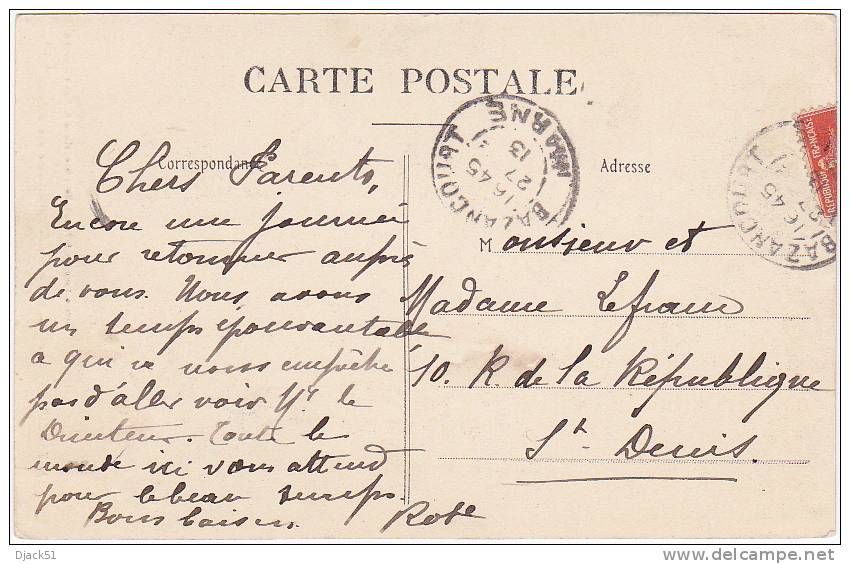 CARTE POSTALE
Correspondance
Adresse
Chers Parents,
Encore une journée
pour retourner auprès
de vous. Nous avons
un temps épouvantable
a qui ne nous empêche
pas d'aller voir Mr le
Directeur. Toute le
monde ici vous attend
pour le beau temps.
Bons baisers. Robe
Monsieur et
Madame Lefranc
10. R. de la République
St Denis
BAZANCOURT
MARNE
16 45
27
13
BAZANCOURT
16 45
27
REPUBLIQUE FRANÇAISE
Djack51
delcampe.net